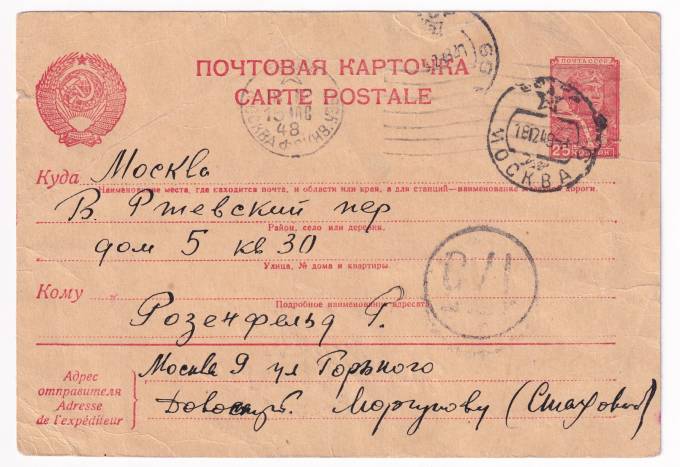 ПОЧТОВАЯ КАРТОЧКА
CARTE POSTALE
ПОЧТА СССР
25 КОПЕЕК
МОСКВА
48
18 12 48
МОСКВА
Куда Москва
Наименование места, где находится почта, и области или края, а для станций—наименование дороги.
В Ржевский пер
Район, село или деревня.
дом 5 кв 30
Улица, № дома и квартиры.
Кому
Подробное наименование адресата
Розенфельд Г.
Адрес
отправителя
Adresse
de l'expéditeur
Москва 9 ул Горького
Моргунову (